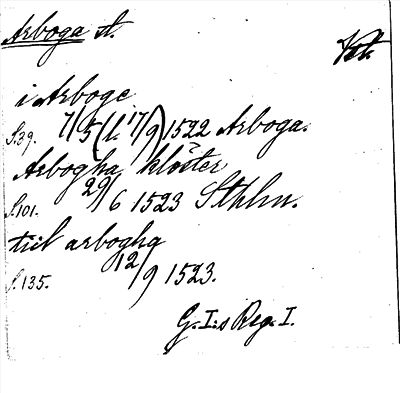 Arboga st. Vstm.
i Arboge
S. 39. 7/5 (l. 17/9) 1522 Arboga.
Arbogha klöster
S. 101. 29/6 1523 Sthlm.
tiil arbogha
S. 135. 12/9 1523.
G. I:s Reg. I.